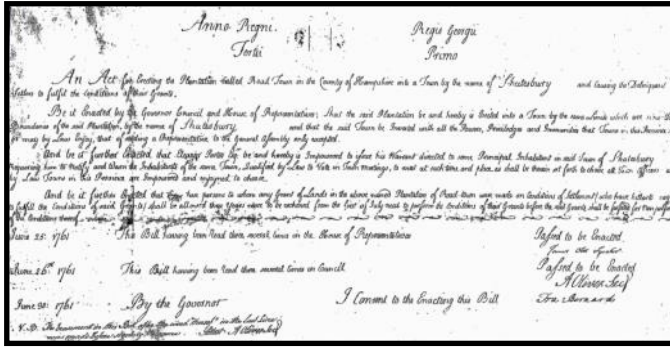 Anno Regni Regis Georgii
Tertii Primo
An Act for Erecting the Plantation called Road Town in the County of Hampshire into a Town by the name of Shutesbury and causing the Delinquent
Settlers to fulfil the Conditions of their Grants.
Be it Enacted by the Governor Council and House of Representatives, that the said Plantation be and hereby is Erected into a Town by the name
Boundaries of the said Plantation, by the name of Shutesbury and that the said Town be Invested with all the Powers, Priviledges and Immunities that Towns in this Province
or may by Law Enjoy, that of sending a Representative to the General Assembly only excepted.
And be it further Enacted that Esq. be and hereby is Impowered to issue his Warrant directed to some Principal Inhabitant in said Town of Shutesbury
Requiring him to Notify and Warn the Inhabitants of the said Town, Qualified by Law to Vote in Town meetings, to meet at such time and place, as shall be therein set forth to choose all such Officers
by Law Towns in this Province are Impowered and enjoyned to choose.
And be it further Enacted that persons to whom any Grant of Lands in the above named Plantation of Road-town were made on Conditions of Settlement, who have hitherto
to fulfill the Conditions of said Grants, shall be allowed Years more to be reckoned from the first of July next to perform the Conditions of their Grants before the said Grants shall be forfeited for non
of the Conditions thereof
June 25. 1761 This Bill having been Read three several times in the House of Representatives Passed to be Enacted
James Otis Speaker
June 26th 1761 This Bill having been Read three several times in Council Passed to be Enacted
A Oliver Secy
June 30: 1761 By the Governor I Consent to the Enacting this Bill Fra Bernard
N.B. The in this Bill in the last Line
Attest A Oliver Secy